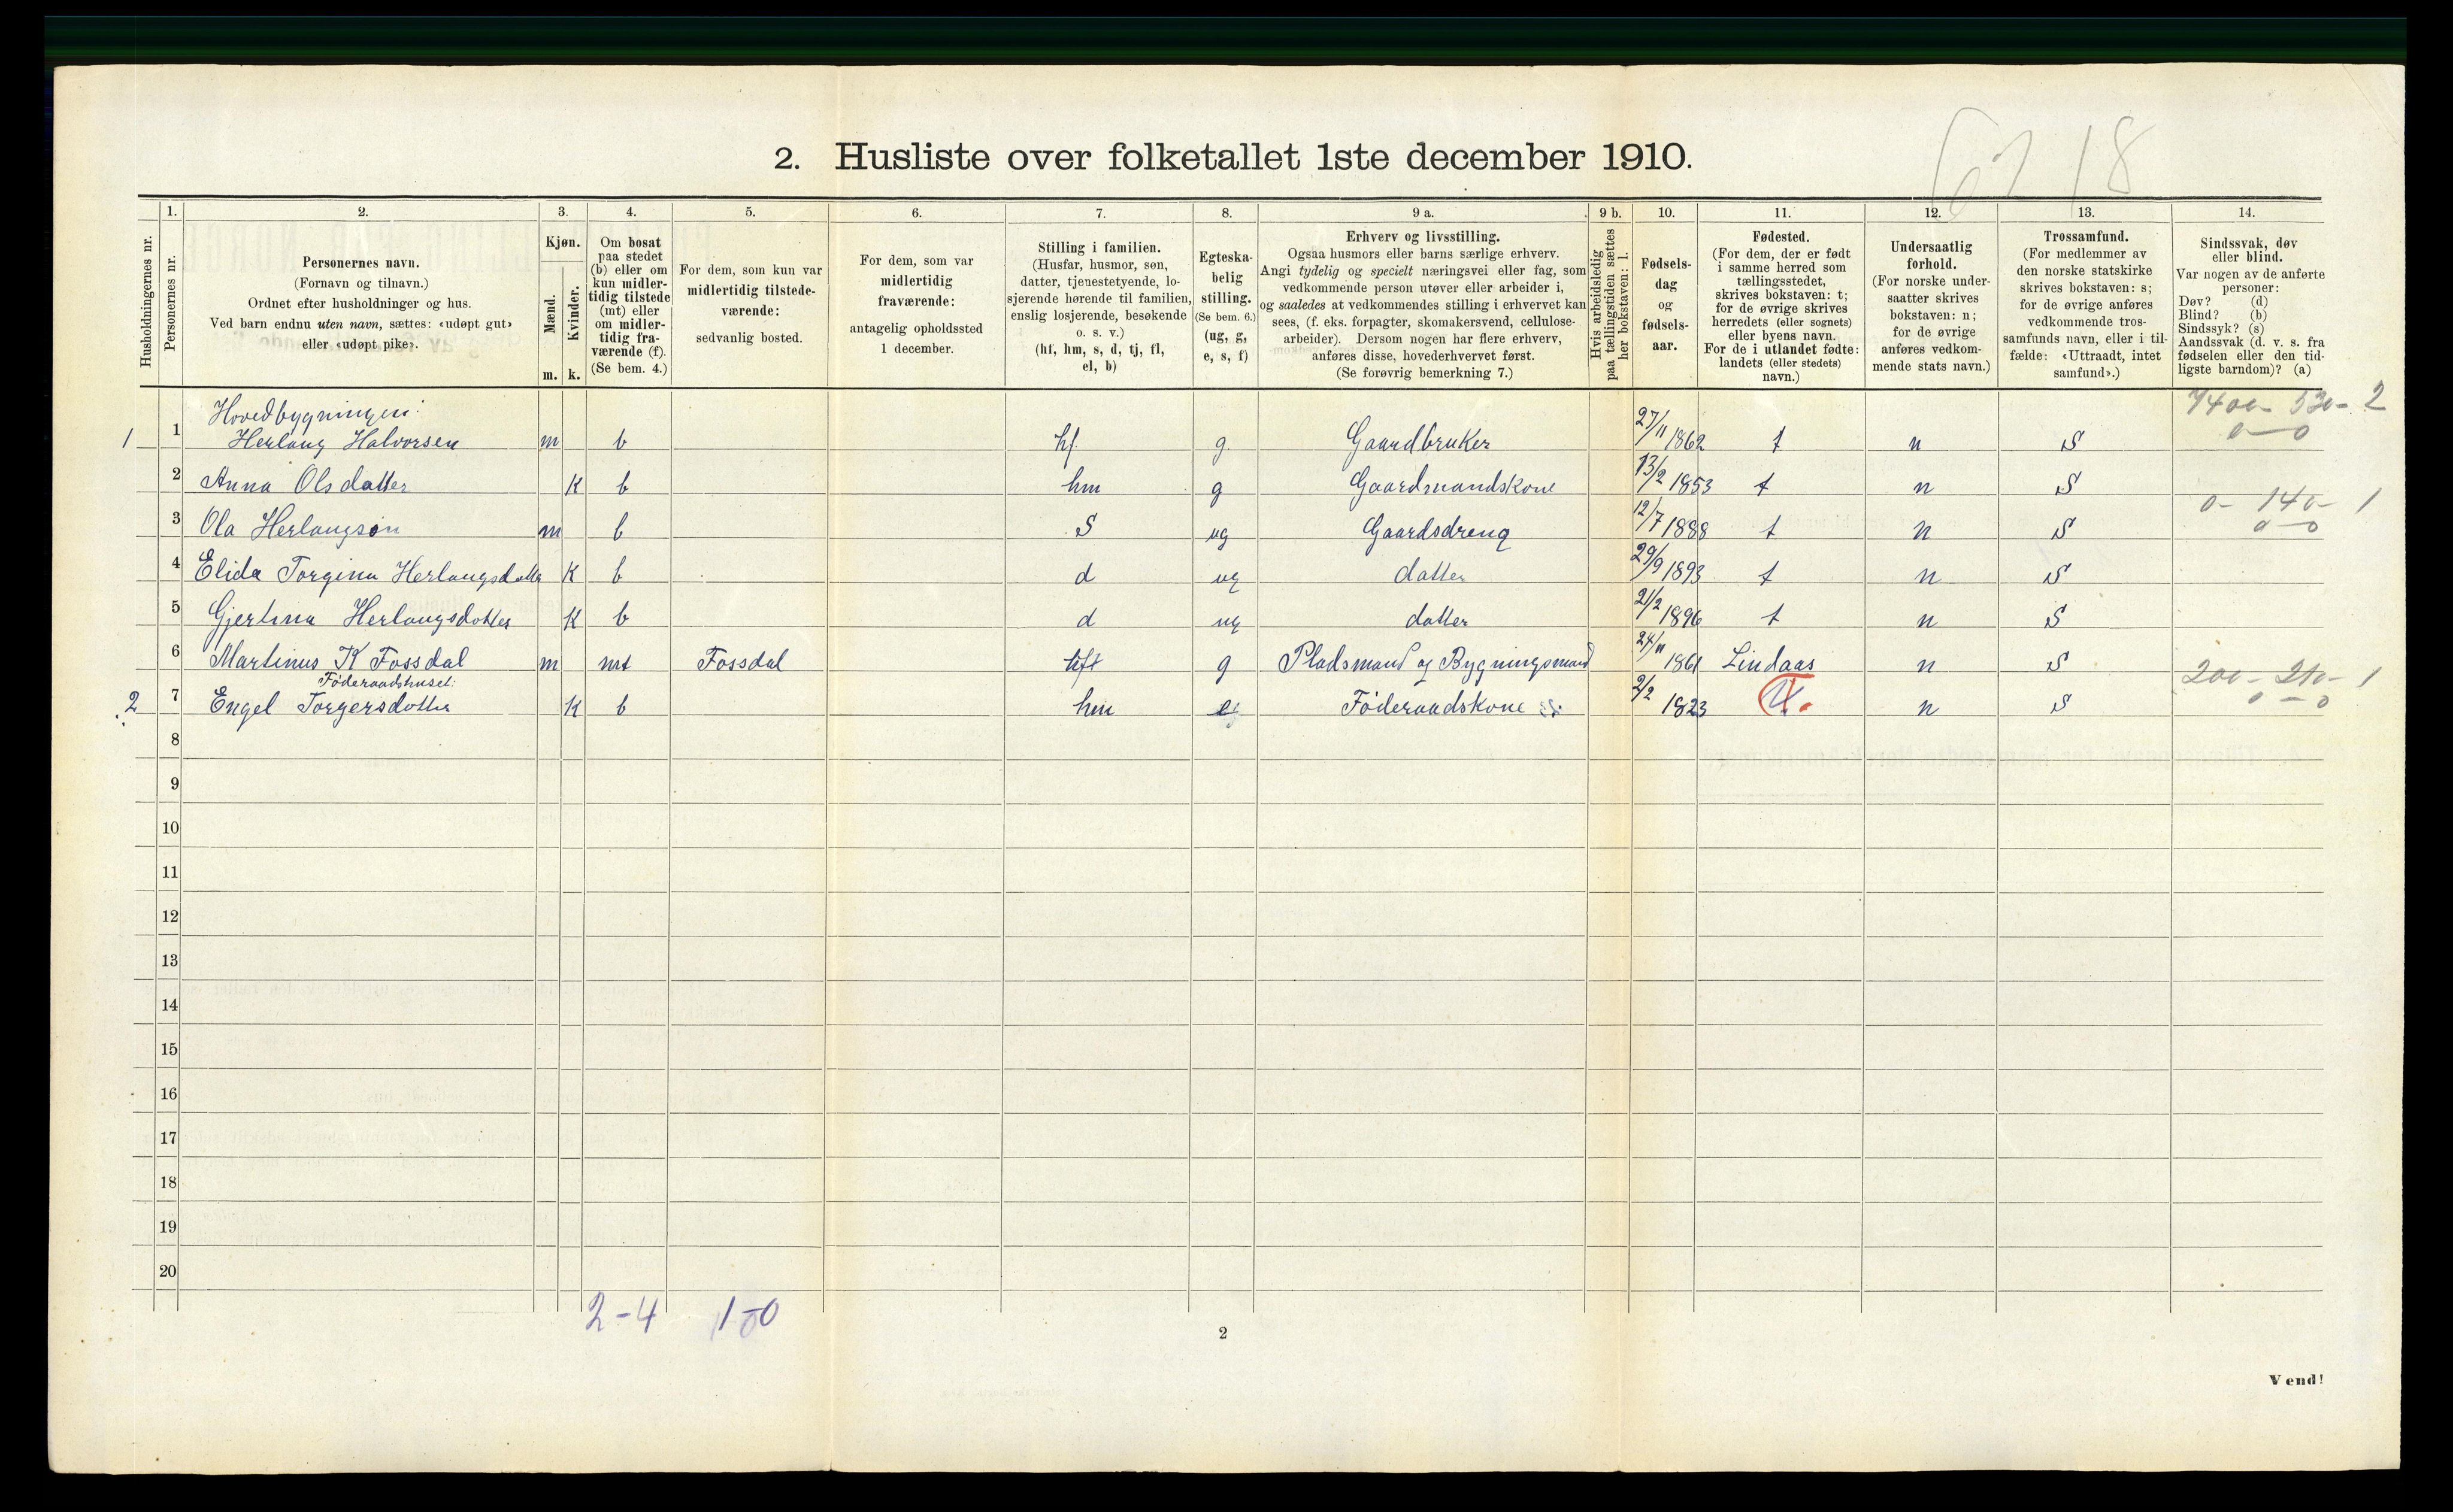 2. Husliste over folketallet 1ste december 1910.
Husholdningernes nr.
1. Personernes nr.
2. Personernes navn.
(Fornavn og tilnavn.)
Ordnet efter husholdninger og hus.
Ved barn endnu uten navn, sættes: «udøpt gut»
eller «udøpt pike».
3. Kjøn.
Mænd. Kvinder.
m. k.
4. Om bosat
paa stedet
(b) eller om
kun midler-
tidig tilstede
(mt) eller
om midler-
tidig fra-
værende (f).
(Se bem. 4.)
5. For dem, som kun var
midlertidig tilstede-
værende:
sedvanlig bosted.
6. For dem, som var
midlertidig
fraværende:
antagelig opholdssted
1 december.
7. Stilling i familien.
(Husfar, husmor, søn,
datter, tjenestetyende, lo-
sjerende hørende til familien,
enslig losjerende, besøkende
o. s. v.)
(hf, hm, s, d, tj, fl,
el, b)
8. Egteska-
belig
stilling.
(Se bem. 6.)
(ug, g,
e, s, f)
9 a. Erhverv og livsstilling.
Ogsaa husmors eller barns særlige erhverv.
Angi tydelig og specielt næringsvei eller fag, som
vedkommende person utøver eller arbeider i,
og saaledes at vedkommendes stilling i erhvervet kan
sees, (f. eks. forpagter, skomakersvend, cellulose-
arbeider). Dersom nogen har flere erhverv,
anføres disse, hovederhvervet først.
(Se forøvrig bemerkning 7.)
9 b. Hvis arbeidsledig
paa tællingstiden sættes
her bokstaven: l.
10. Fødsels-
dag
og
fødsels-
aar.
11. Fødested.
(For dem, der er født
i samme herred som
tællingsstedet,
skrives bokstaven: t;
for de øvrige skrives
herredets (eller sognets)
eller byens navn.
For de i utlandet fødte:
landets (eller stedets)
navn.)
12. Undersaatlig
forhold.
(For norske under-
saatter skrives
bokstaven: n;
for de øvrige
anføres vedkom-
mende stats navn.)
13. Trossamfund.
(For medlemmer av
den norske statskirke
skrives bokstaven: s;
for de øvrige anføres
vedkommende tros-
samfunds navn, eller i til-
fælde: «Uttraadt, intet
samfund».)
14. Sindssvak, døv
eller blind.
Var nogen av de anførte
personer:
Døv? (d)
Blind? (b)
Sindssyk? (s)
Aandssvak (d. v. s. fra
fødselen eller den tid-
ligste barndom)? (a)
Hovedbygningen:
1 1 Herlaug Halvorsen m b hf g Gaardbruker 27/11 1862 t n S
2 Anna Olsdatter K b hm g Gaardmandskone 13/2 1853 t n S
3 Ola Herlaugson m b S ug Gaardsdreng 12/7 1888 t n S 0- 140- 1
0-0
4 Elida Torgina Herlaugsdatter K b d ug datter 29/9 1893 t n S
5 Gjertina Herlaugsdatter K b d ug datter 21/2 1896 t n S
6 Martinus K Fossdal m mt Fossdal g Pladsmand og Bygningsmand 24/11 1861 Lindaas n S
Föderaadshuset:
2 7 Engel Torgersdotter K b hm e Föderaadskone 2/2 1823 n S 200- 210- 1
0-0
8
9
10
11
12
13
14
15
16
17
18
19
20
2-4 1-0
2
Vend!